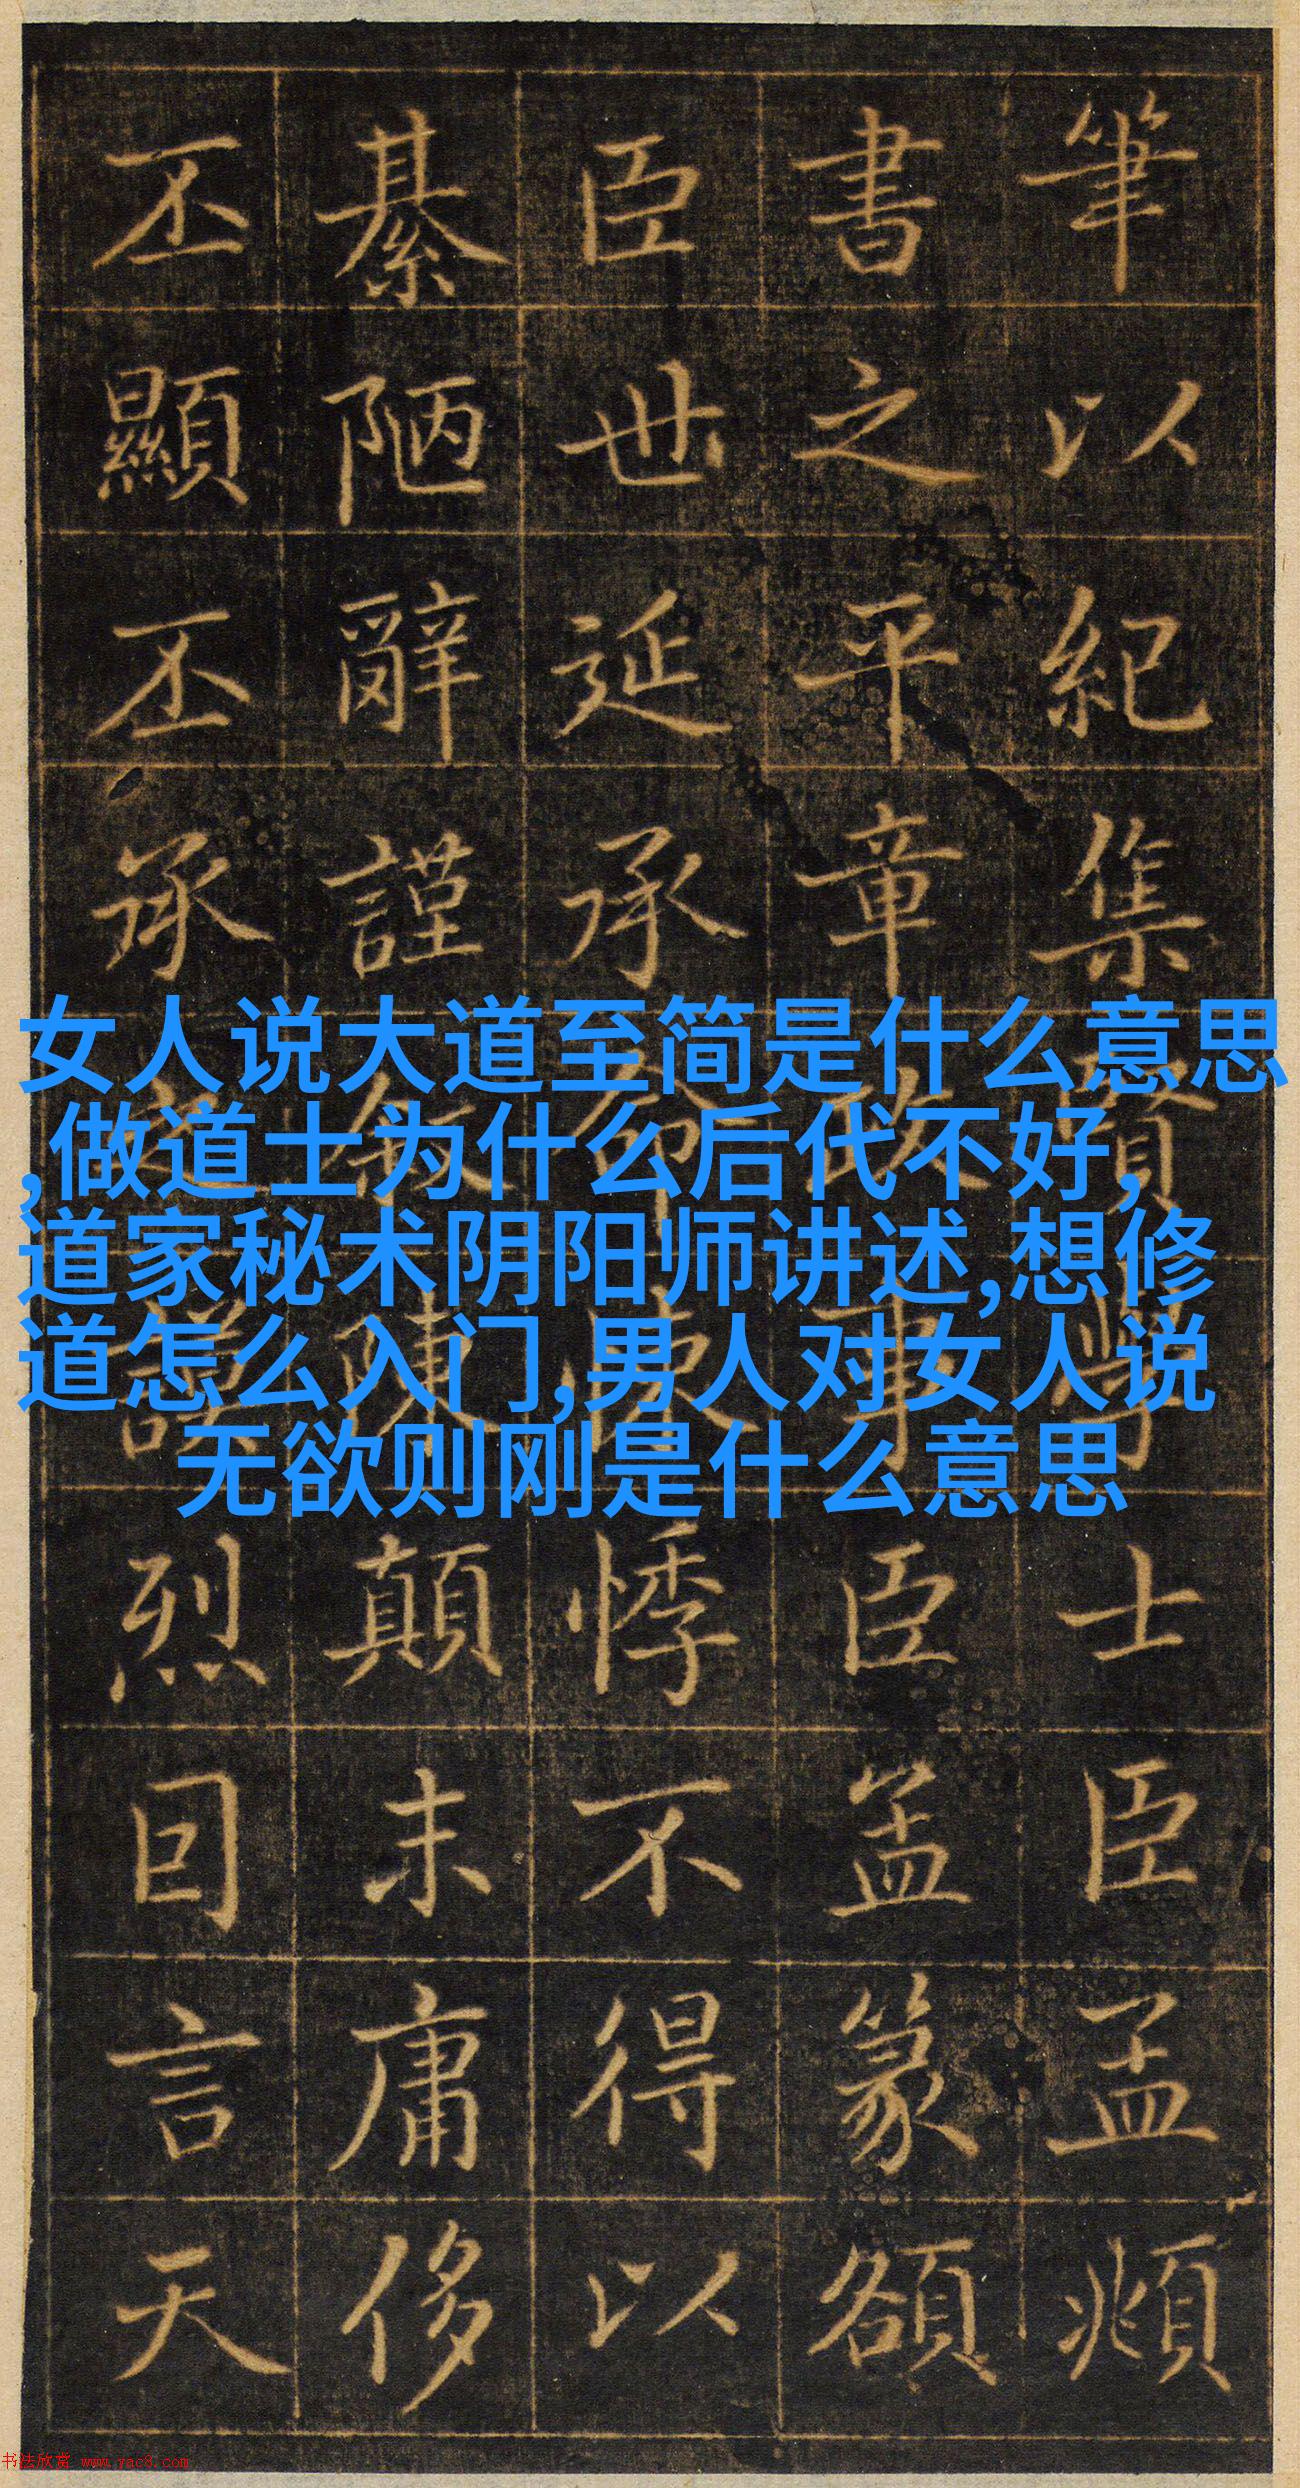 女人说大道至简是什么意思
,做道士为什么后代不好,
道家秘术阴阳师讲述,想修
道怎么入门,男人对女人说
无欲则刚是什么意思
筆以紀集賢學士臣孟頫
書之平章政事臣孟篆額
臣世延承命悚悸不得以
綦陋辭謹敘陳顛末庸侈
丕顯丕承謨烈囙言天
书法欣赏 www.yac8.com